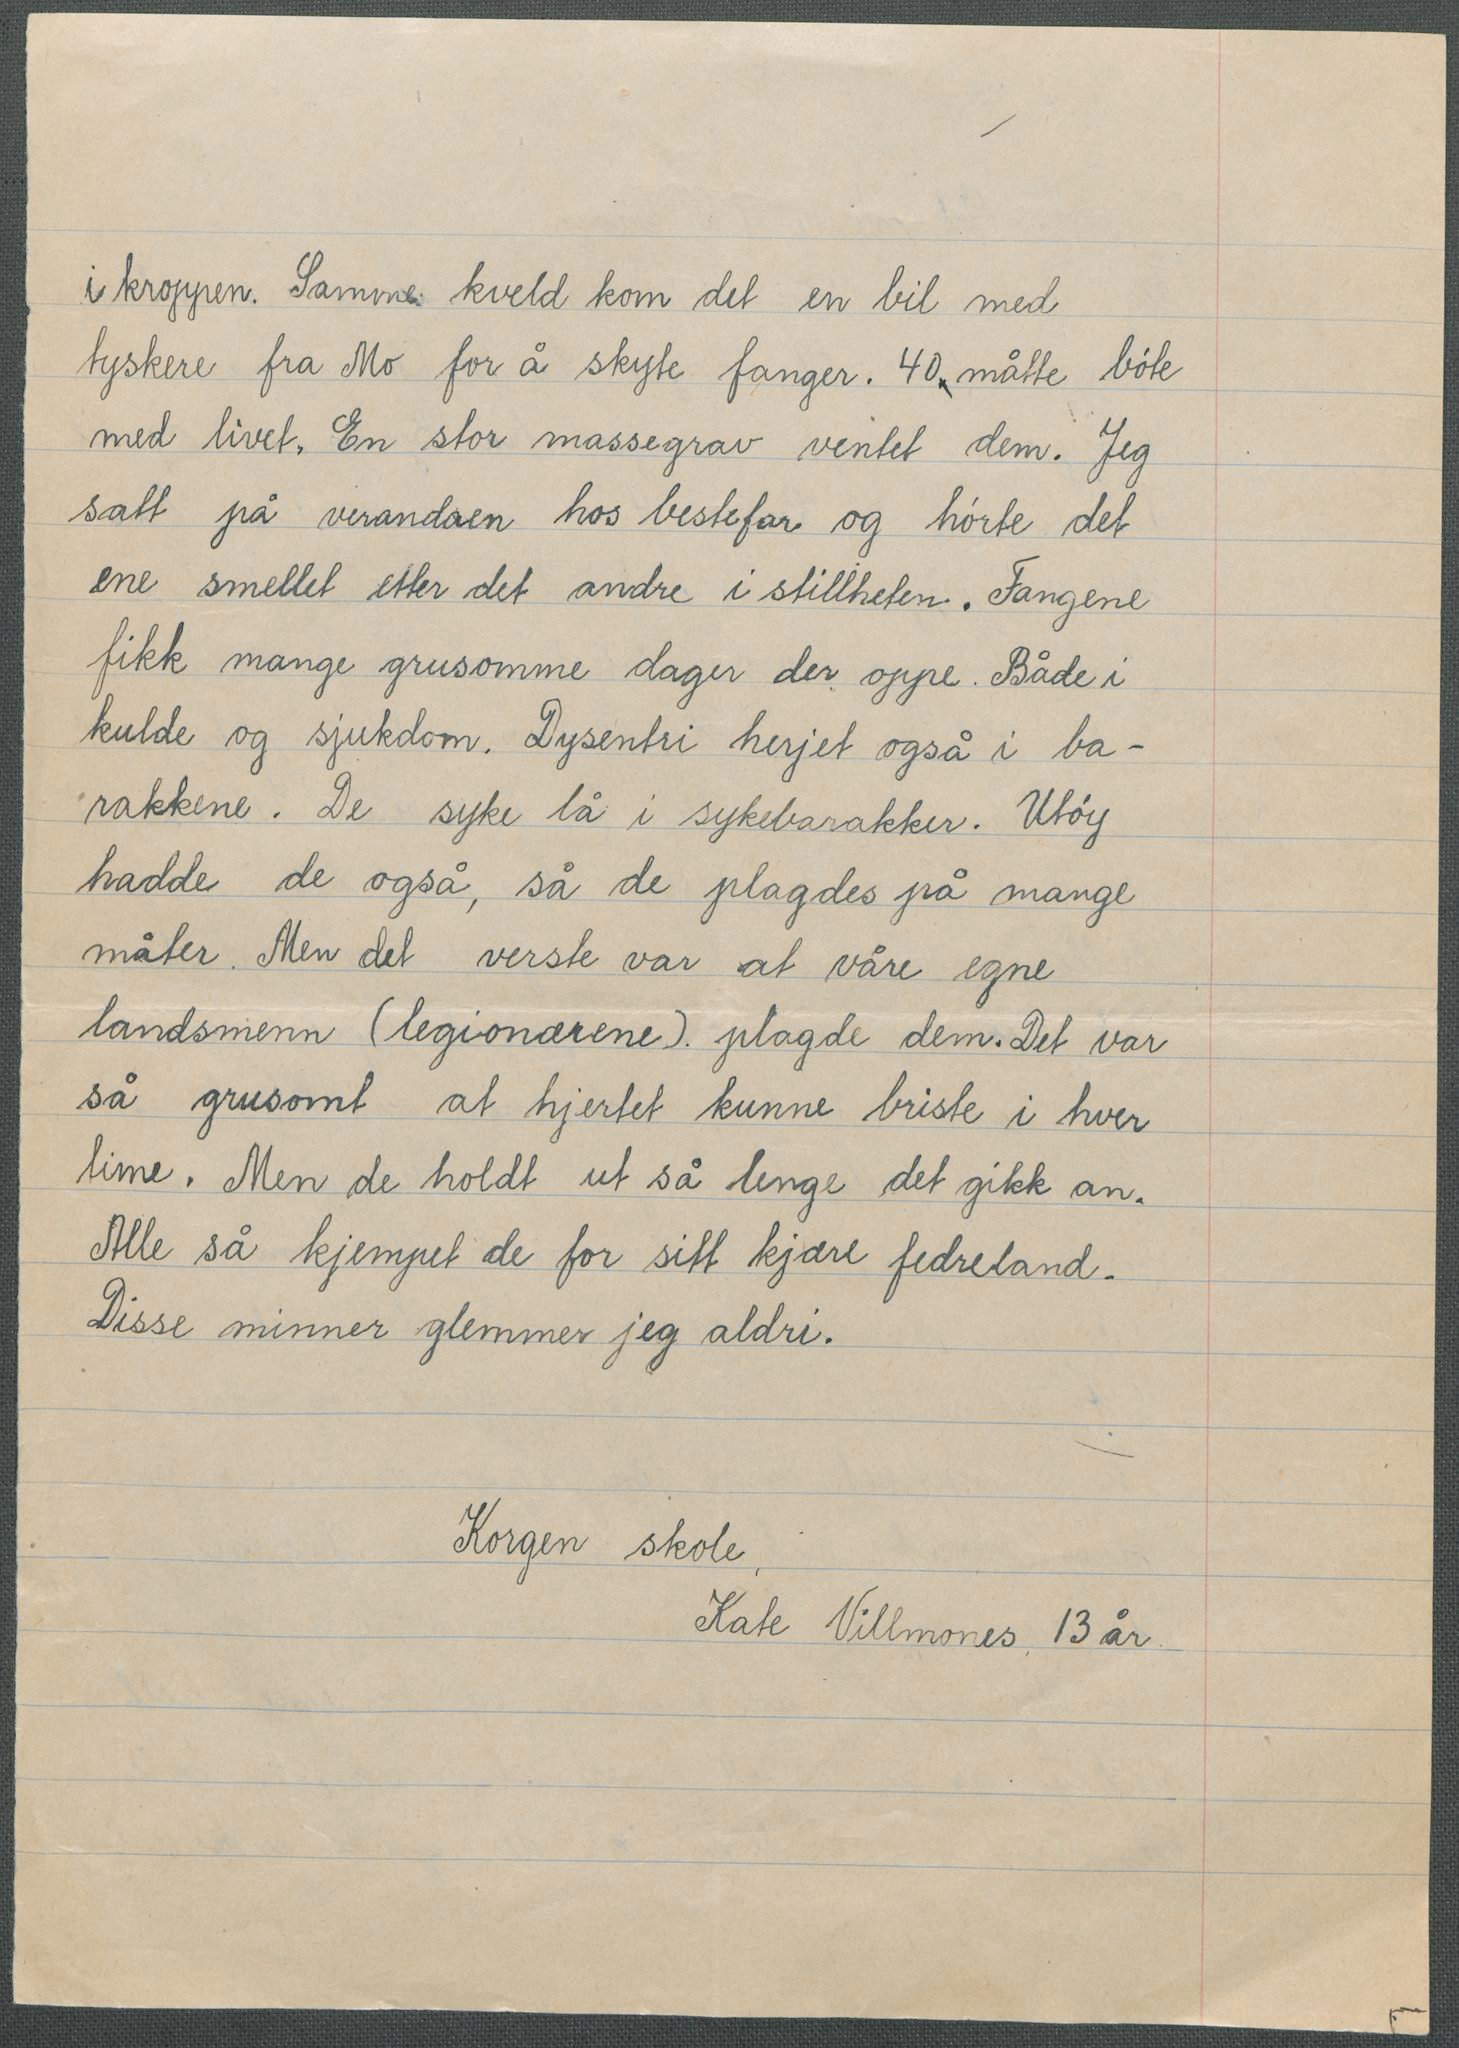 i kroppen. Samme kveld kom det en bil med
tyskere fra Mo for å skyte fanger. 40 måtte bóte
med livet. En stor massegrav ventet dem. Jeg
satt på verandaen hos bestefar og hórte det
ene smellet etter det andre i stillheten. Fangene
fikk mange grusomme dager der oppe. Både i
kulde og sjukdom. Dysentri herjet også i ba-
rakkene. De syke lå i sykebarakker. Utóy
hadde de også, så de plagdes på mange
måter. Men det verste var at våre egne
landsmenn (legionærene). plagde dem. Det var
så grusomt at hjertet kunne briste i hver
time. Men de holdt ut så lenge det gikk an.
Alle så kjempet de for sitt kjære fedreland.
Disse minner glemmer jeg aldri.
Korgen skole,
Kate Villmones, 13 år.